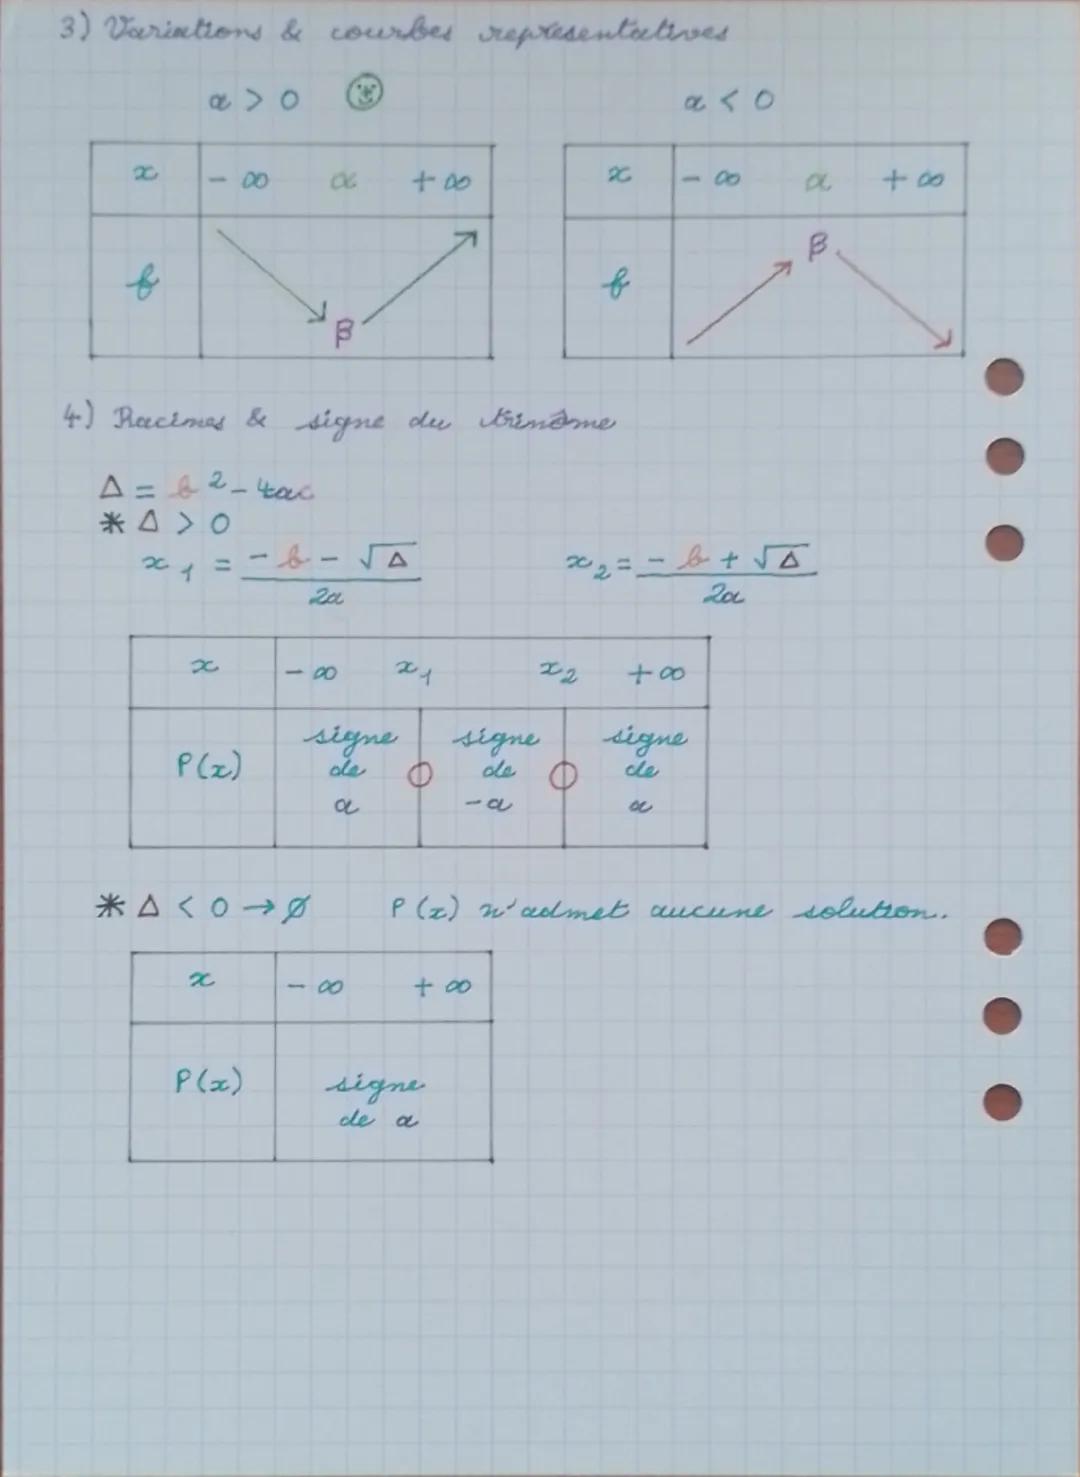 3) Variations & courbes représentatives
a > 0
a < 0
x -∞ α +∞
f β
x -∞ α +∞
f β
4) Racines & signe du trinôme
Δ = b² - 4ac
* Δ > 0
x₁ = (-b - √Δ) / 2a
x₂ = (-b + √Δ) / 2a
x -∞ x₁ x₂ +∞
P(x) signe de a 0 signe de -a 0 signe de a
* Δ < 0 → ∅ P(x) n'admet aucune solution.
x -∞ +∞
P(x) signe de a